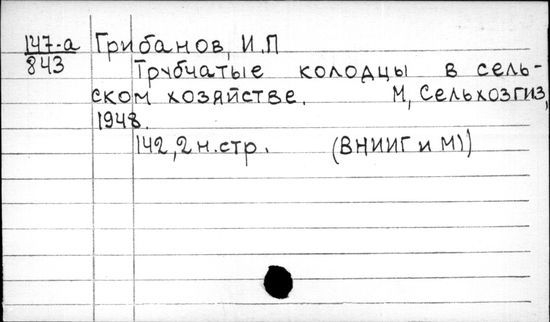 147-а Грибанов, И.П
843
Трубчатые колодцы в сель-
ском хозяйстве. М, Сельхозгиз,
1948.
142,2н.стр. (ВНИИГ и М))